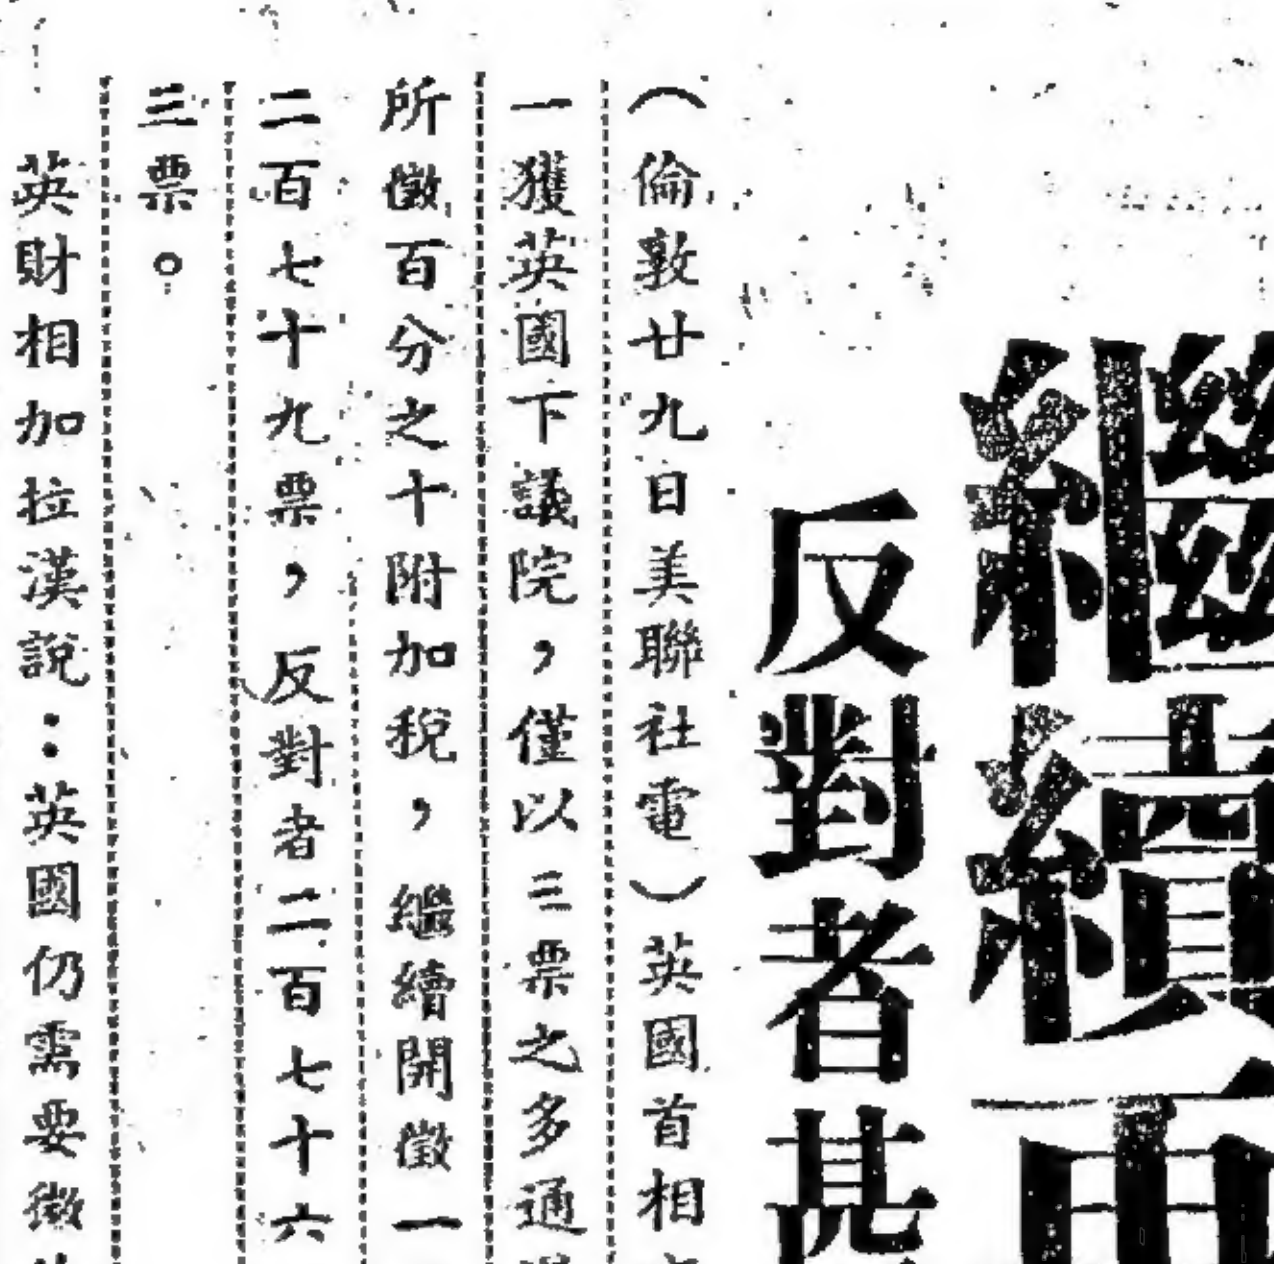 繼續再
反對者甚
（倫敦廿九日美聯社電）英國首相
一獲英國下議院，僅以三票之多通
所徵百分之十附加稅，繼續開徵一
二百七十九票，反對者二百七十六
三票。
英財相加拉漢說：英國仍需要徵